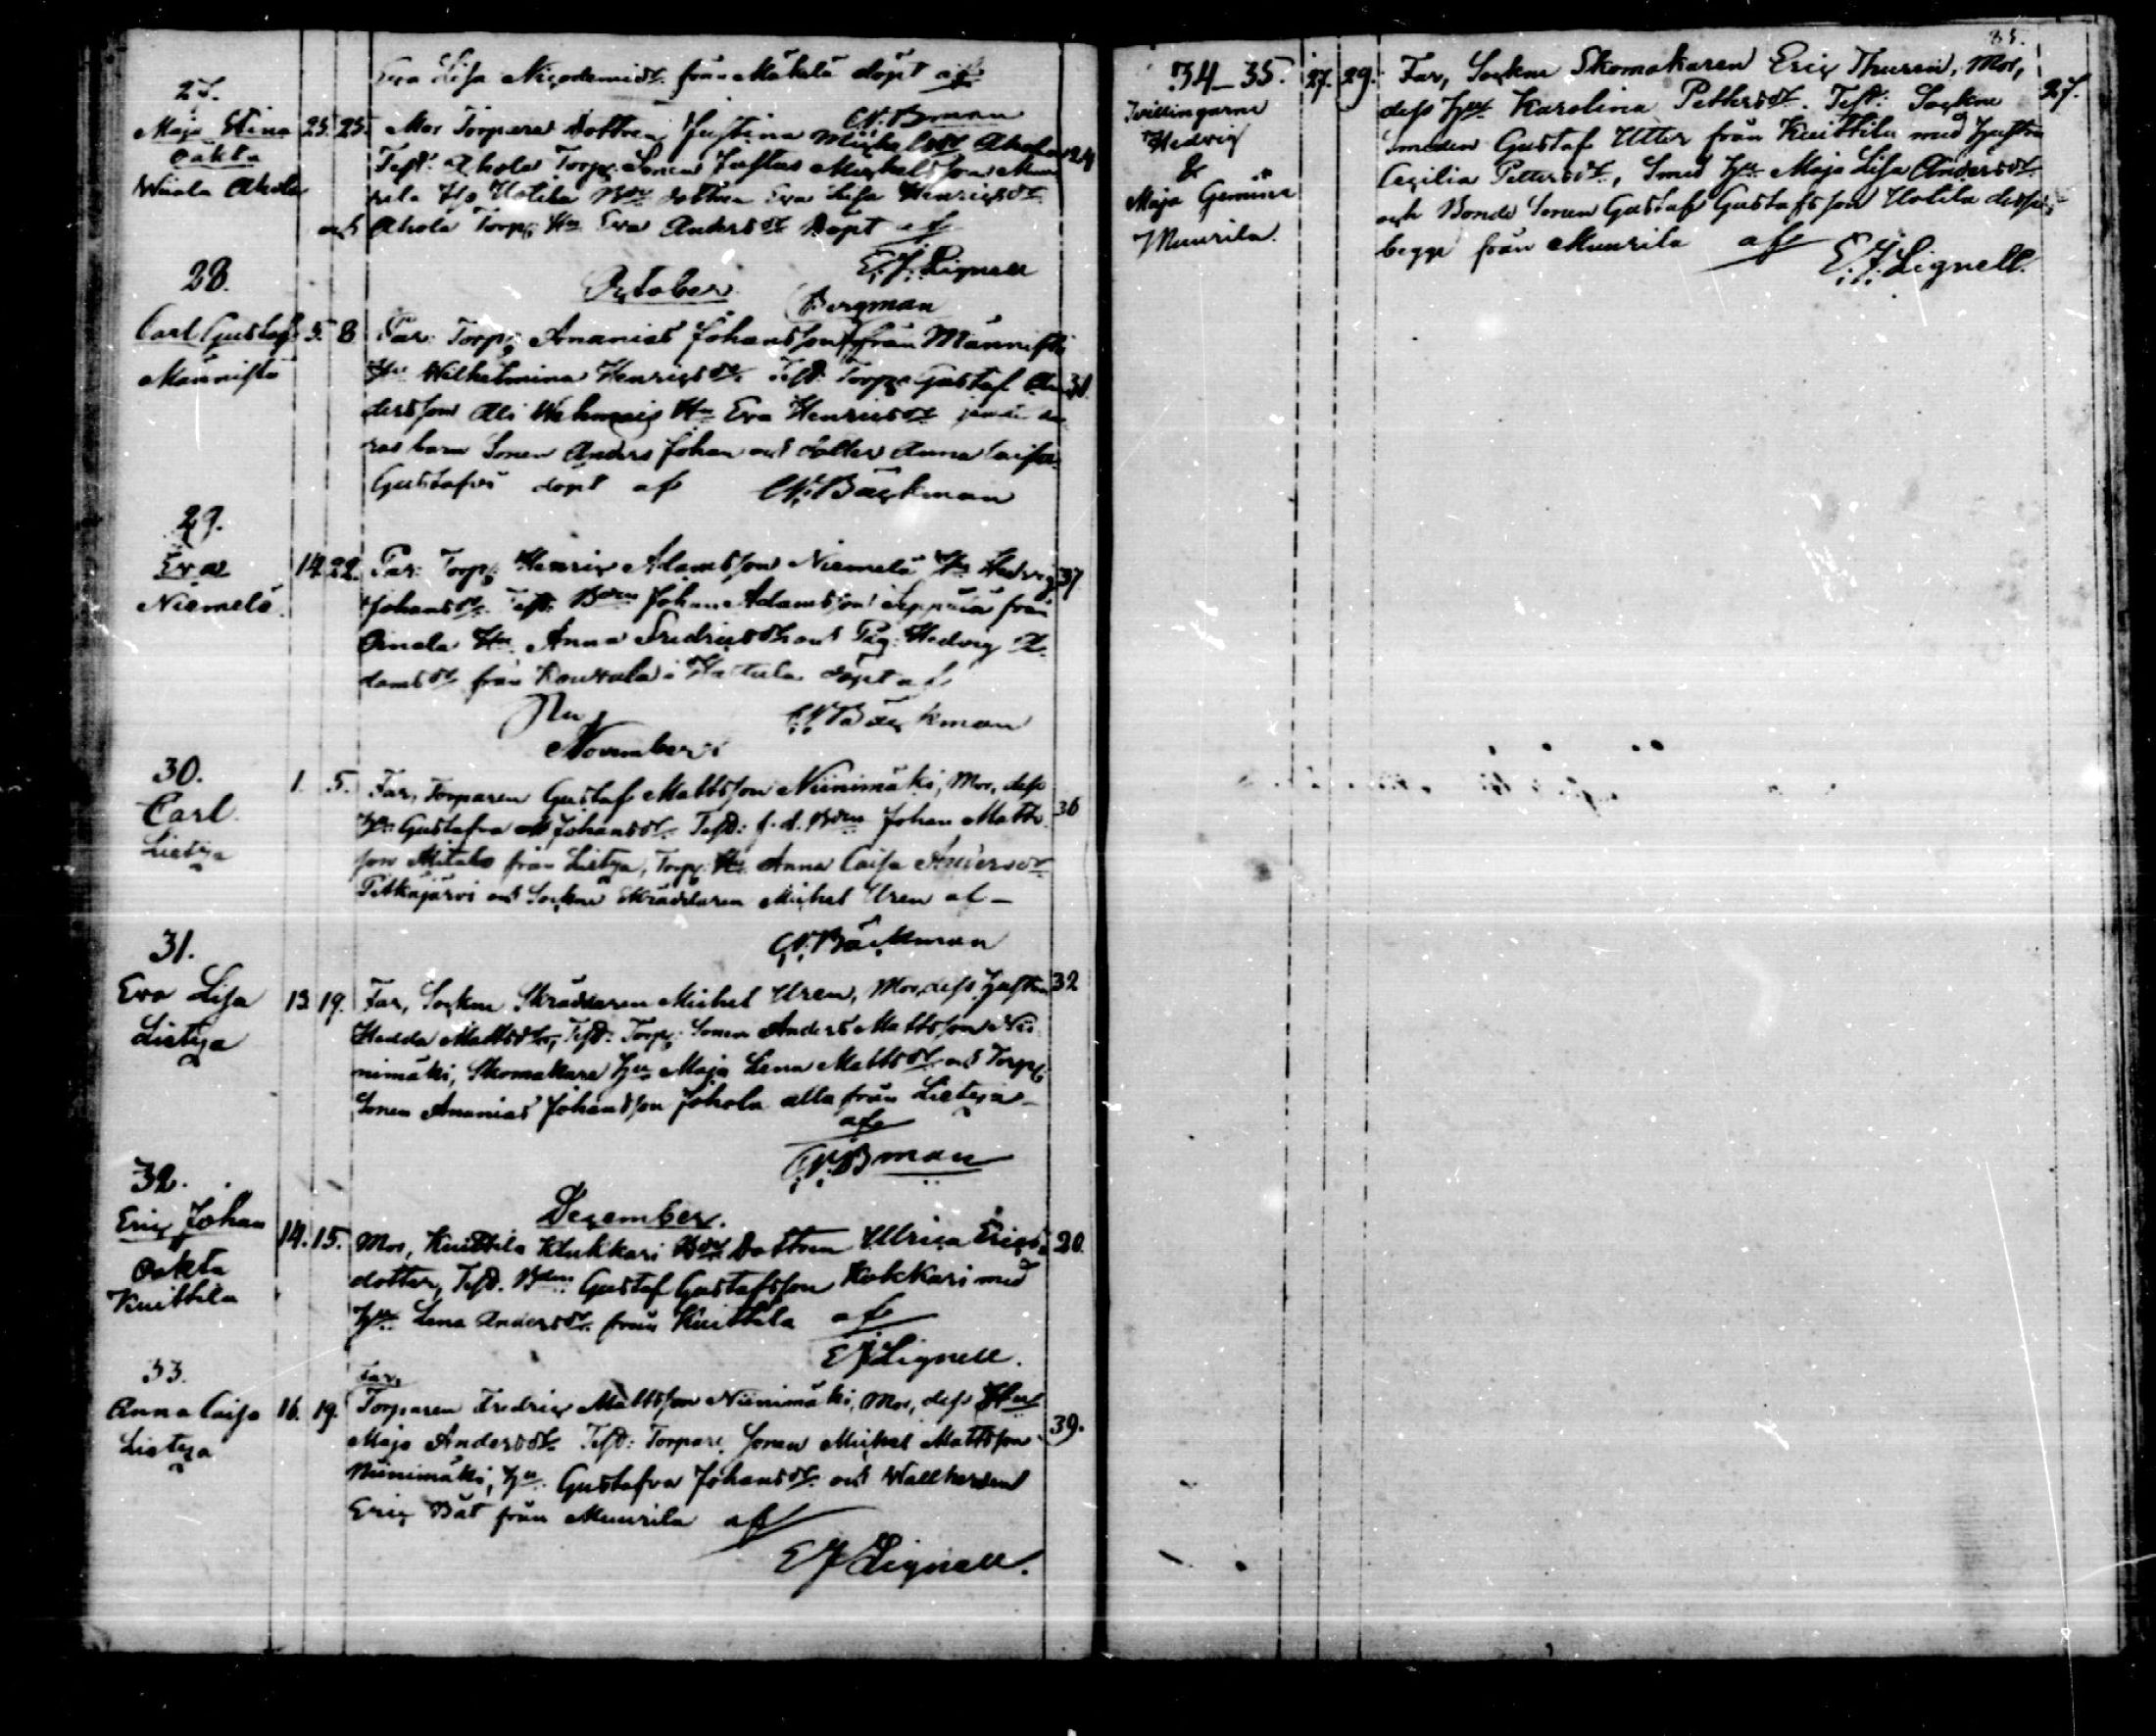 Eva Lisa Nicodemidr. från Mäkelä döpt af
C.N.Bman
27.
Maja Stina
oäkta
Wiiala Ahola
25. 25. Mor Torpare dottren Justina Michelsdr Ahola 24
Test: Ahola Torp. Sonen Justus Michelsson
Hotila Bde dottren Eva Lisa Henricsdr
och Ahola Torp. Hu Eva Andersdr Döpt af
E.J.Lignell
October.
28.
Carl Gustaf
Männistö
5. 8 Far: Torp. Ananias Johansson Bergman från Männistö
Hu Wilhelmina Henricsdr. Test: Torp. Gustaf An 31.
dersson Ali Wehmais Hu Eva Henricsdr
ras barn Sonen Anders Johan och dotter Anna Caisa
Gustafva döpt af C.N.Bäckman
29.
Eva
Niemelä.
14. 22. Far: Torp. Henric Adamsson Niemelä Hu Hedvig 37
Johansdr. Test: Bden Johan Adamsson Seppälä från
Hu. Anna Fredricsdr och Pig. Hedvig A-
damsdr från i Hattula döpt af
C.N.Bäckman
November
30.
Carl
Lietza
1. 5. Far, Torparen Gustaf Mattsson Niinimäki, Mor, dess 36
Hu Gustafva Johansdr. Test: f.d. Bden Johan Matts-
son Mitala från Lietza, Torp. Hu Anna Caisa Andersdr
Pitkäjärvi och Sockne Skräddaren Michel Uren af –
C.N.Bäckman
31.
Eva Lisa
Lietza
13 19. Far, Sockne Skräddaren Michel Uren, Mor, dess hustru 32
Hedda Mattsdtr, Test: Torp. Sonen Anders Mattsson Nii-
nimäki, Skomakare Hu Maja Lena Mattsdr och Torp.
Sonen Ananias Johansson Johola alla från Lietza –
af
C.N.Bman
December.
32.
Eric Johan
Oäkta
Kuittila
14. 15. Mor, Kuittila Klukkari Bde Dottren Ulrica Erics 20.
dotter, Test. Bden Gustaf Gustafsson Kokkari med
Hu Lena Andersdr. från Kuittila af
E J Lignell.
33.
Anna Caisa
Lietza
Far,
16. 19. Torparen Fredric Mattsson Niinimäki, Mor, dess Hu 39.
Maja Andersdr. Test: Torpare Sonen Michel Mattsson
Niinimäki, Hu Gustafva Johansdr. och Wallherden
Eric Båt från Muurila af
E J Lignell.
34–35.
Tvillingarne
Hedvig
&
Maja
Muurila.
27. 29. Far, Sockne Skomakaren Eric Thuren, Mor, 27.
dess Hu Karolina Pettersdr. Test: Sockne
Smeden Gustaf Utter från Kuittila med hustru
Cecilia Pettersdr., Smed Hu Maja Lisa Andersdr.
och Bonde Sonen Gustaf Gustafsson Hotila dessa
begge från Muurila af
E.J.Lignell.